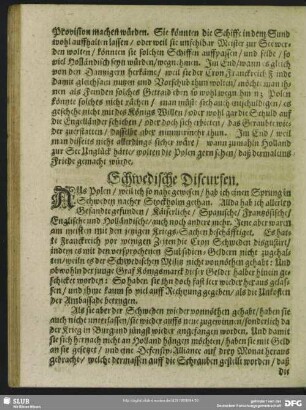 Provision machen würden. Sie könnten die Schiffe in dem Sund
wohl auffhalten lassen / und weil sie unfehlbar Meister zur See wer-
den wolten / könnten sie solchen Schiffen auffpassen / und selbe / so
viel Holländisch seyn würden / wegnehmen. Im End / wann
von den Dennigern herkäme / weil sie der Cron Franckreich Feinde
damit gleichsam
men als Feinden solches Getraid / den so wol wegen den
könte solches nicht rächen / man müste sich auch entschuldigen / es
geschehe nicht mit des Königs Willen / oder gar die Schuld auff
die Engelländer schieben / oder doch sich erbieten / das Geraubte wie-
der zuerstatten / dasselbe aber nimmermehr thun. Im End / weil
man diseits nicht allerdings sicher wäre / wann zumahln Holland
zur See Unglück hätte / wolten die Polen gern sehen / daß dermaleins
Friede gemacht würde.
Schwedische Discursen.
Aus Polen / weil ich so nahe gewesen / hab ich einen Sprung in
Schweden nacher Stockholm gethan. Allda hab ich allerley
Gesandte gefunden / Käiserliche / Spanische / Frantzösische /
Englische und Holländische / auch noch andere mehr. Jene aber waren
am meisten mit den jetzigen Kriegs-Sachen beschäfftiget. Es hat-
te Franckreich vor wenigen Zeiten die Cron Schweden disgustirt /
indem es mit den versprochenen Subsidien-Geldern nicht zugehal-
ten / weilen es der Schwedischen Meister nicht vonnöthen gehabt: Und
obwohln der junge Graf Königsmarck dieser Gelder halber hinein ge-
schicket worden: So haben sie ihn doch fast leer wieder heraus gelas-
sen / und ihme kaum so viel auff Rechnung gegeben / als die Unkosten
der Ambassade betragen.
Als sie aber der Schweden wieder vonnöthen gehabt / haben sie
auch nicht unterlassen / sie wieder auffs neu anzuweinen / sonderlich da
der Krieg in Burgund jüngst wieder angefangen worden. Und damit
sie sich hernach nicht an Holland hängen möchten / haben sie mit Geld
an sie gesetzet / und eine Defensiv-Alliance auf drey Monat heraus
gebracht / welche dermassen auff die Schrauben gestellt worden / daß